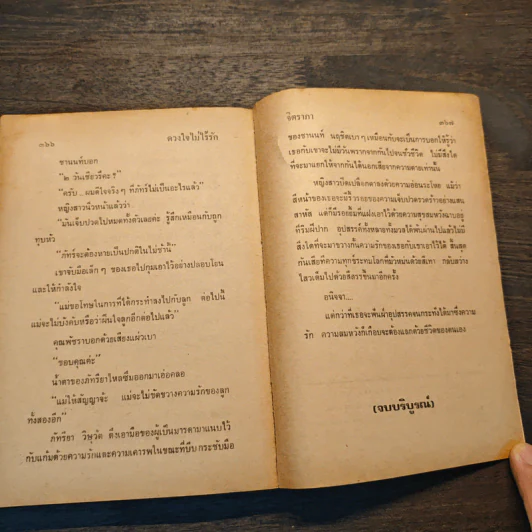 ๓๖๖ ดวงใจไม่ไร้รัก
ชานนท์บอก
"๒ วันเชียวรึคะ !"
"ครับ... ผมดีใจจริงๆ ที่ภัทร์ไม่เป็นอะไรแล้ว"
หญิงสาวนิ่วหน้าแล้วว่า
"มันเจ็บปวดไปหมดทั้งตัวเลยค่ะ รู้สึกเหมือนกับถูก
ทุบหัว"
"ภัทร์จะต้องหายเป็นปกติในไม่ช้านี้"
เขาจับมือเล็กๆ ของเธอไปกุมเอาไว้อย่างปลอบโยน
และให้กำลังใจ
"แม่ขอโทษในการที่ได้กระทำลงไปกับลูก ต่อไปนี้
แม่จะไม่บังคับหรือว่าฝืนใจลูกอีกต่อไปแล้ว"
คุณพัชราบอกด้วยเสียงแผ่วเบา
"ขอบคุณค่ะ"
น้ำตาของภัทรียาไหลซึมออกมาเอ่อคลอ
"แม่ให้สัญญาจ้ะ แม่จะไม่ขัดขวางความรักของลูก
ทั้งสองอีก"
ภัทรียา วิษุวัต ดึงเอามือของผู้เป็นมารดามาแนบไว้
กับแก้มด้วยความรักและความเคารพในขณะที่บีบกระชับมือ
จิตราภา ๓๖๗
ของชานนท์ นฤชิตเบาๆ เหมือนกับจะเป็นการบอกให้รู้ว่า
เธอกับเขาจะไม่มีวันพรากจากกันไปจนชั่วชีวิต ไม่มีสิ่งใด
ที่จะมาแยกให้จากกันได้นอกเสียจากความตายเท่านั้น
หญิงสาวปิดเปลือกตาลงด้วยความอ่อนระโหย แม้ว่า
สีหน้าของเธอจะมีริ้วรอยของความเจ็บปวดรวดร้าวอย่างแสน
สาหัส แต่ก็มีรอยยิ้มที่แฝงเอาไว้ด้วยความสุขสมหวังฉาบอยู่
ที่ริมฝีปาก อุปสรรคทั้งหลายทั้งมวลได้พ้นผ่านไปแล้วไม่มี
สิ่งใดที่จะมาขวางกั้นความรักของเธอกับเขาเอาไว้ได้ สิ้นสุด
กันเสียที ความทุกข์ระทมโลกที่มัวหมนด้วยสีเทา กลับสว่าง
ไสวเต็มไปด้วยสีสรรขึ้นมาอีกครั้ง
อนิจจา....
แต่กว่าที่เธอจะฟันฝ่าอุปสรรคจนกระทั่งได้มาซึ่งความ
รัก ความสมหวังก็เกือบจะต้องแลกด้วยชีวิตของตนเอง
(จบบริบูรณ์)